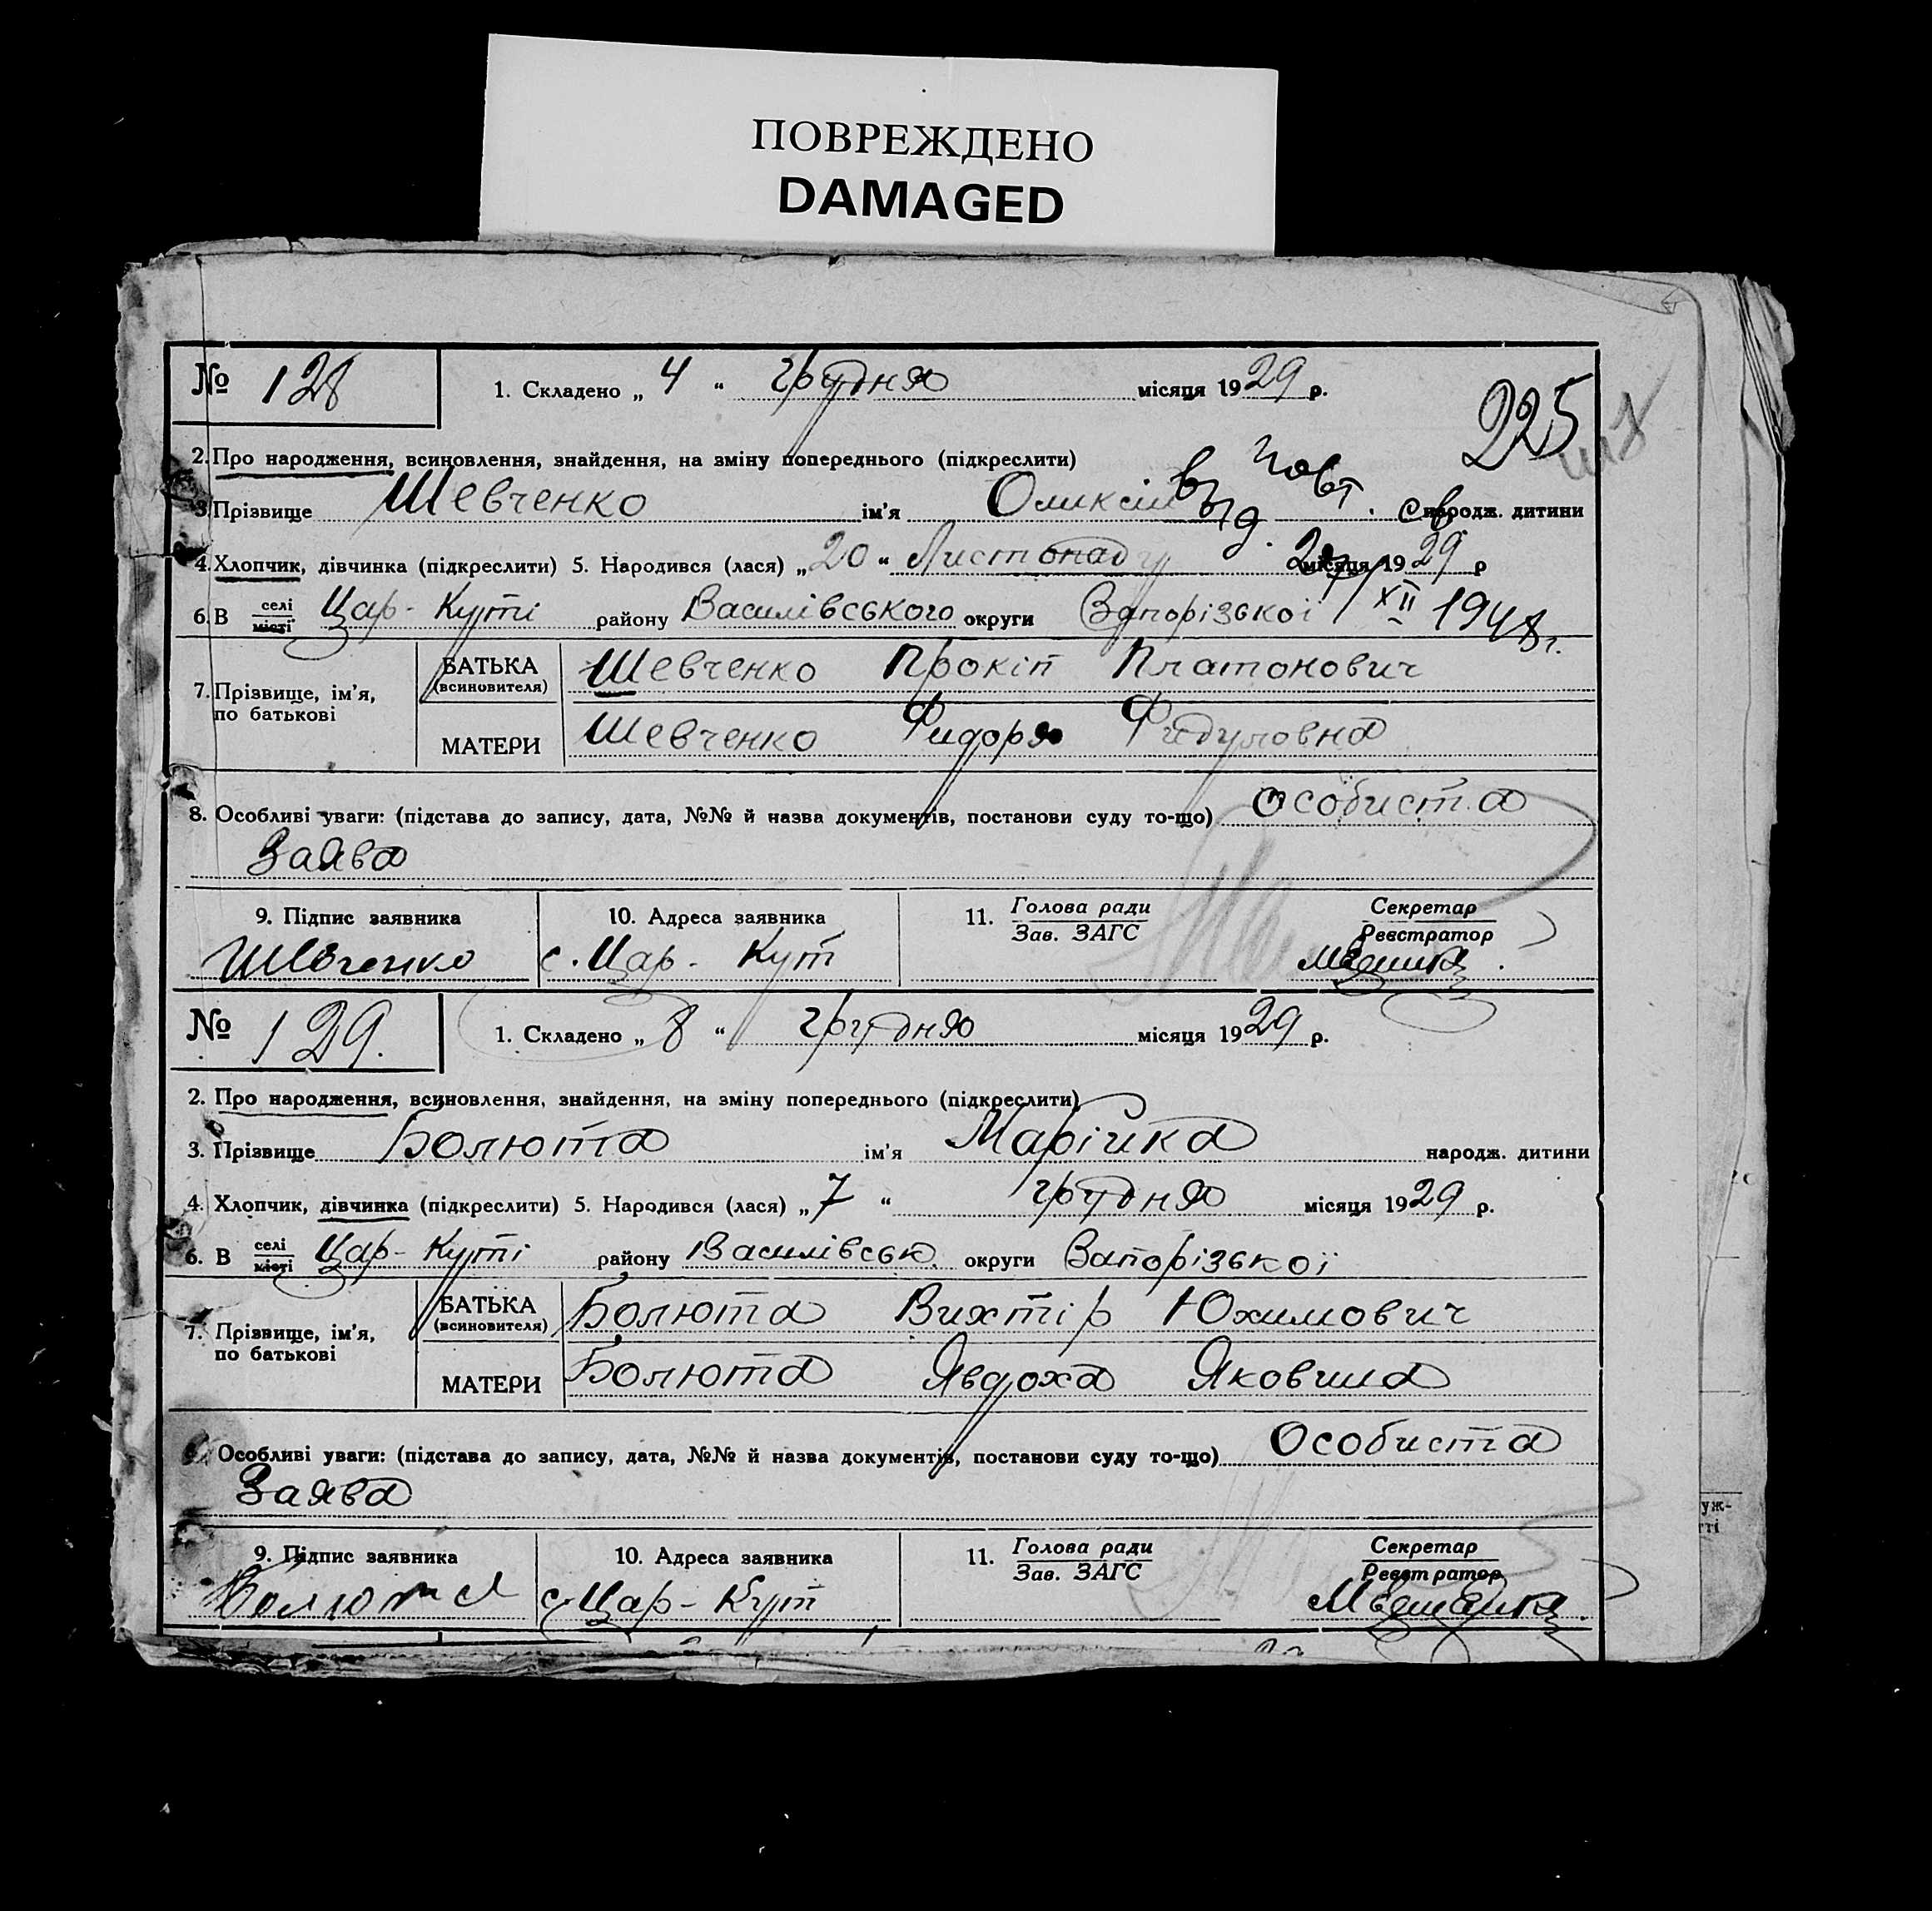 ПОВРЕЖДЕНО
DAMAGED
№ 128
1. Складено „ 4 “ грудня місяця 1929 р.
225
2. Про народження, всиновлення, знайдення, на зміну попереднього (підкреслити)
3. Прізвище Шевченко ім’я Оликсій народж. дитини
выд. повт. св.
4. Хлопчик, дівчинка (підкреслити) 5. Народився (лася) „ 20 “ Листопаду місяця 1929 р
XII 1948 г.
6. В селі місті Цар-Куті району Василівського округи Запорізької
7. Прізвище, ім’я, по батькові
БАТЬКА (всиновителя) Шевченко Прокіп Платонович
МАТЕРИ Шевченко Фидоря Фидуловна
8. Особливі уваги: (підстава до запису, дата, №№ й назва документів, постанови суду то-що) Особиста
Заява
9. Підпис заявника 10. Адреса заявника 11. Голова ради Зав. ЗАГС Секретар Реєстратор
Шевченко с. Цар-Кут
№ 129.
1. Складено „ 8 “ грудня місяця 1929 р.
2. Про народження, всиновлення, знайдення, на зміну попереднього (підкреслити)
3. Прізвище Болюта ім’я Марійка народж. дитини
4. Хлопчик, дівчинка (підкреслити) 5. Народився (лася) „ 7 “ грудня місяця 1929 р.
6. В селі місті Цар-Куті району Василівськ. округи Запорізької
7. Прізвище, ім’я, по батькові
БАТЬКА (всиновителя) Болюта Вихтір Юхимович
МАТЕРИ Болюта Явдоха Яковина
Особливі уваги: (підстава до запису, дата, №№ й назва документів, постанови суду то-що) Особиста
Заява
9. Підпис заявника 10. Адреса заявника 11. Голова ради Зав. ЗАГС Секретар Реєстратор
Болюта с. Цар-Кут